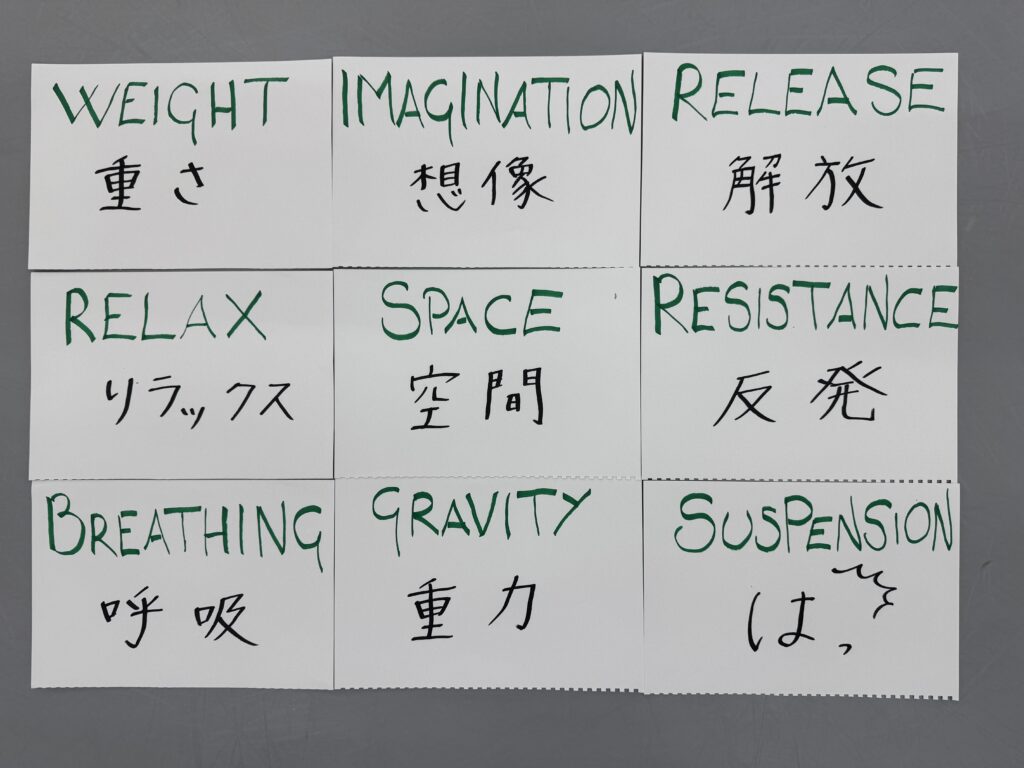 WEIGHT
重さ
IMAGINATION
想像
RELEASE
解放
RELAX
リラックス
SPACE
空間
RESISTANCE
反発
BREATHING
呼吸
GRAVITY
重力
SUSPENSION
はっ